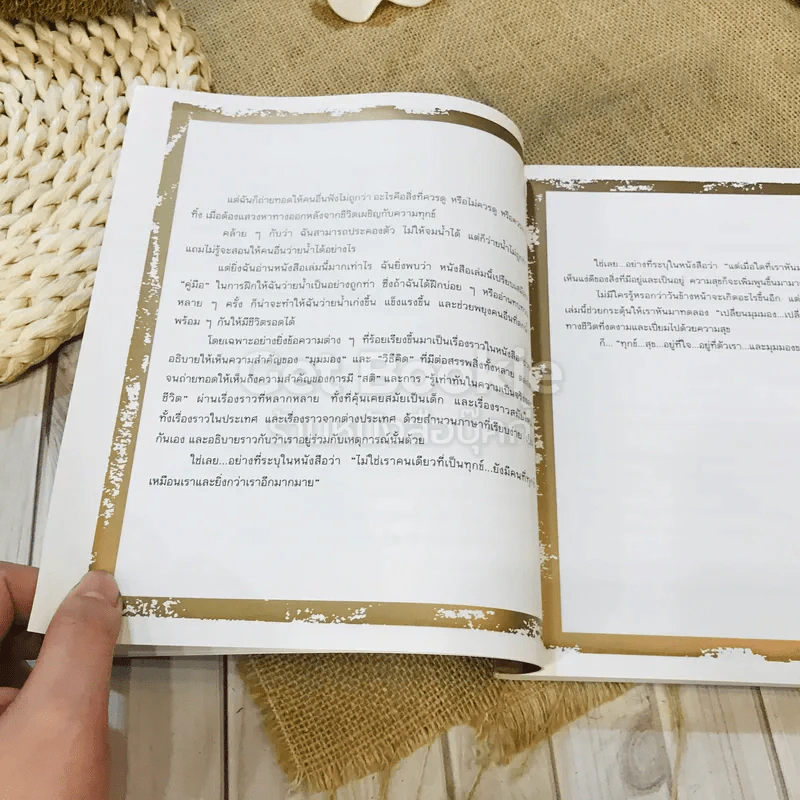 แต่ฉันก็ถ่ายทอดให้คนอื่นฟังไม่ถูกว่า อะไรคือสิ่งที่ควรดู หรือไม่ควรดู หรือควร
ทิ้ง เมื่อต้องแสวงหาทางออกหลังจากชีวิตเผชิญกับความทุกข์
คล้าย ๆ กับว่า ฉันสามารถประคองตัว ไม่ให้จมน้ำได้ แต่ก็ว่ายน้ำไม่ถูก
แถมไม่รู้จะสอนให้คนอื่นว่ายน้ำได้อย่างไร
แต่ยิ่งฉันอ่านหนังสือเล่มนี้มากเท่าไร ฉันยิ่งพบว่า หนังสือเล่มนี้เปรียบเสมือน
"คู่มือ" ในการฝึกให้ฉันว่ายน้ำเป็นอย่างถูกท่า ซึ่งถ้าฉันได้ฝึกบ่อย ๆ หรืออ่านทบทวน
หลาย ๆ ครั้ง ก็น่าจะทำให้ฉันว่ายน้ำเก่งขึ้น แข็งแรงขึ้น และช่วยพยุงคนอื่นที่
พร้อม ๆ กันให้มีชีวิตรอดได้
โดยเฉพาะอย่างยิ่งข้อความต่าง ๆ ที่ร้อยเรียงขึ้นมาเป็นเรื่องราวในหนังสือ
อธิบายให้เห็นความสำคัญของ "มุมมอง" และ "วิธีคิด" ที่มีต่อสรรพสิ่งทั้งหลาย
จนถ่ายทอดให้เห็นถึงความสำคัญของการมี "สติ" และการ "รู้เท่าทันในความเป็นจริงของ
ชีวิต" ผ่านเรื่องราวที่หลากหลาย ทั้งที่คุ้นเคยสมัยเป็นเด็ก และเรื่องราวสมัยใหม่
ทั้งเรื่องราวในประเทศ และเรื่องราวจากต่างประเทศ ด้วยสำนวนภาษาที่เรียบง่าย เป็น
กันเอง และอธิบายราวกับว่าเราอยู่ร่วมกับเหตุการณ์นั้นด้วย
ใช่เลย...อย่างที่ระบุในหนังสือว่า "ไม่ใช่เราคนเดียวที่เป็นทุกข์...ยังมีคนที่ทุกข์
เหมือนเราและยิ่งกว่าเราอีกมากมาย"
ใช่เลย...อย่างที่ระบุในหนังสือว่า "แต่เมื่อใดที่เราหันม
เห็นแง่ดีของสิ่งที่มีอยู่และเป็นอยู่ ความสุขก็จะเพิ่มพูนขึ้นมามา
ไม่มีใครรู้หรอกว่าวันข้างหน้าจะเกิดอะไรขึ้นอีก แต่
เล่มนี้ช่วยกระตุ้นให้เราหันมาทดลอง "เปลี่ยนมุมมอง...เปลี่
ทางชีวิตที่งดงามและเปี่ยมไปด้วยความสุข
ก็... "ทุกข์...สุข...อยู่ที่ใจ...อยู่ที่ตัวเรา...และมุมมองข
Got Bookie
ร้านหนังสือบุ๊คกี้